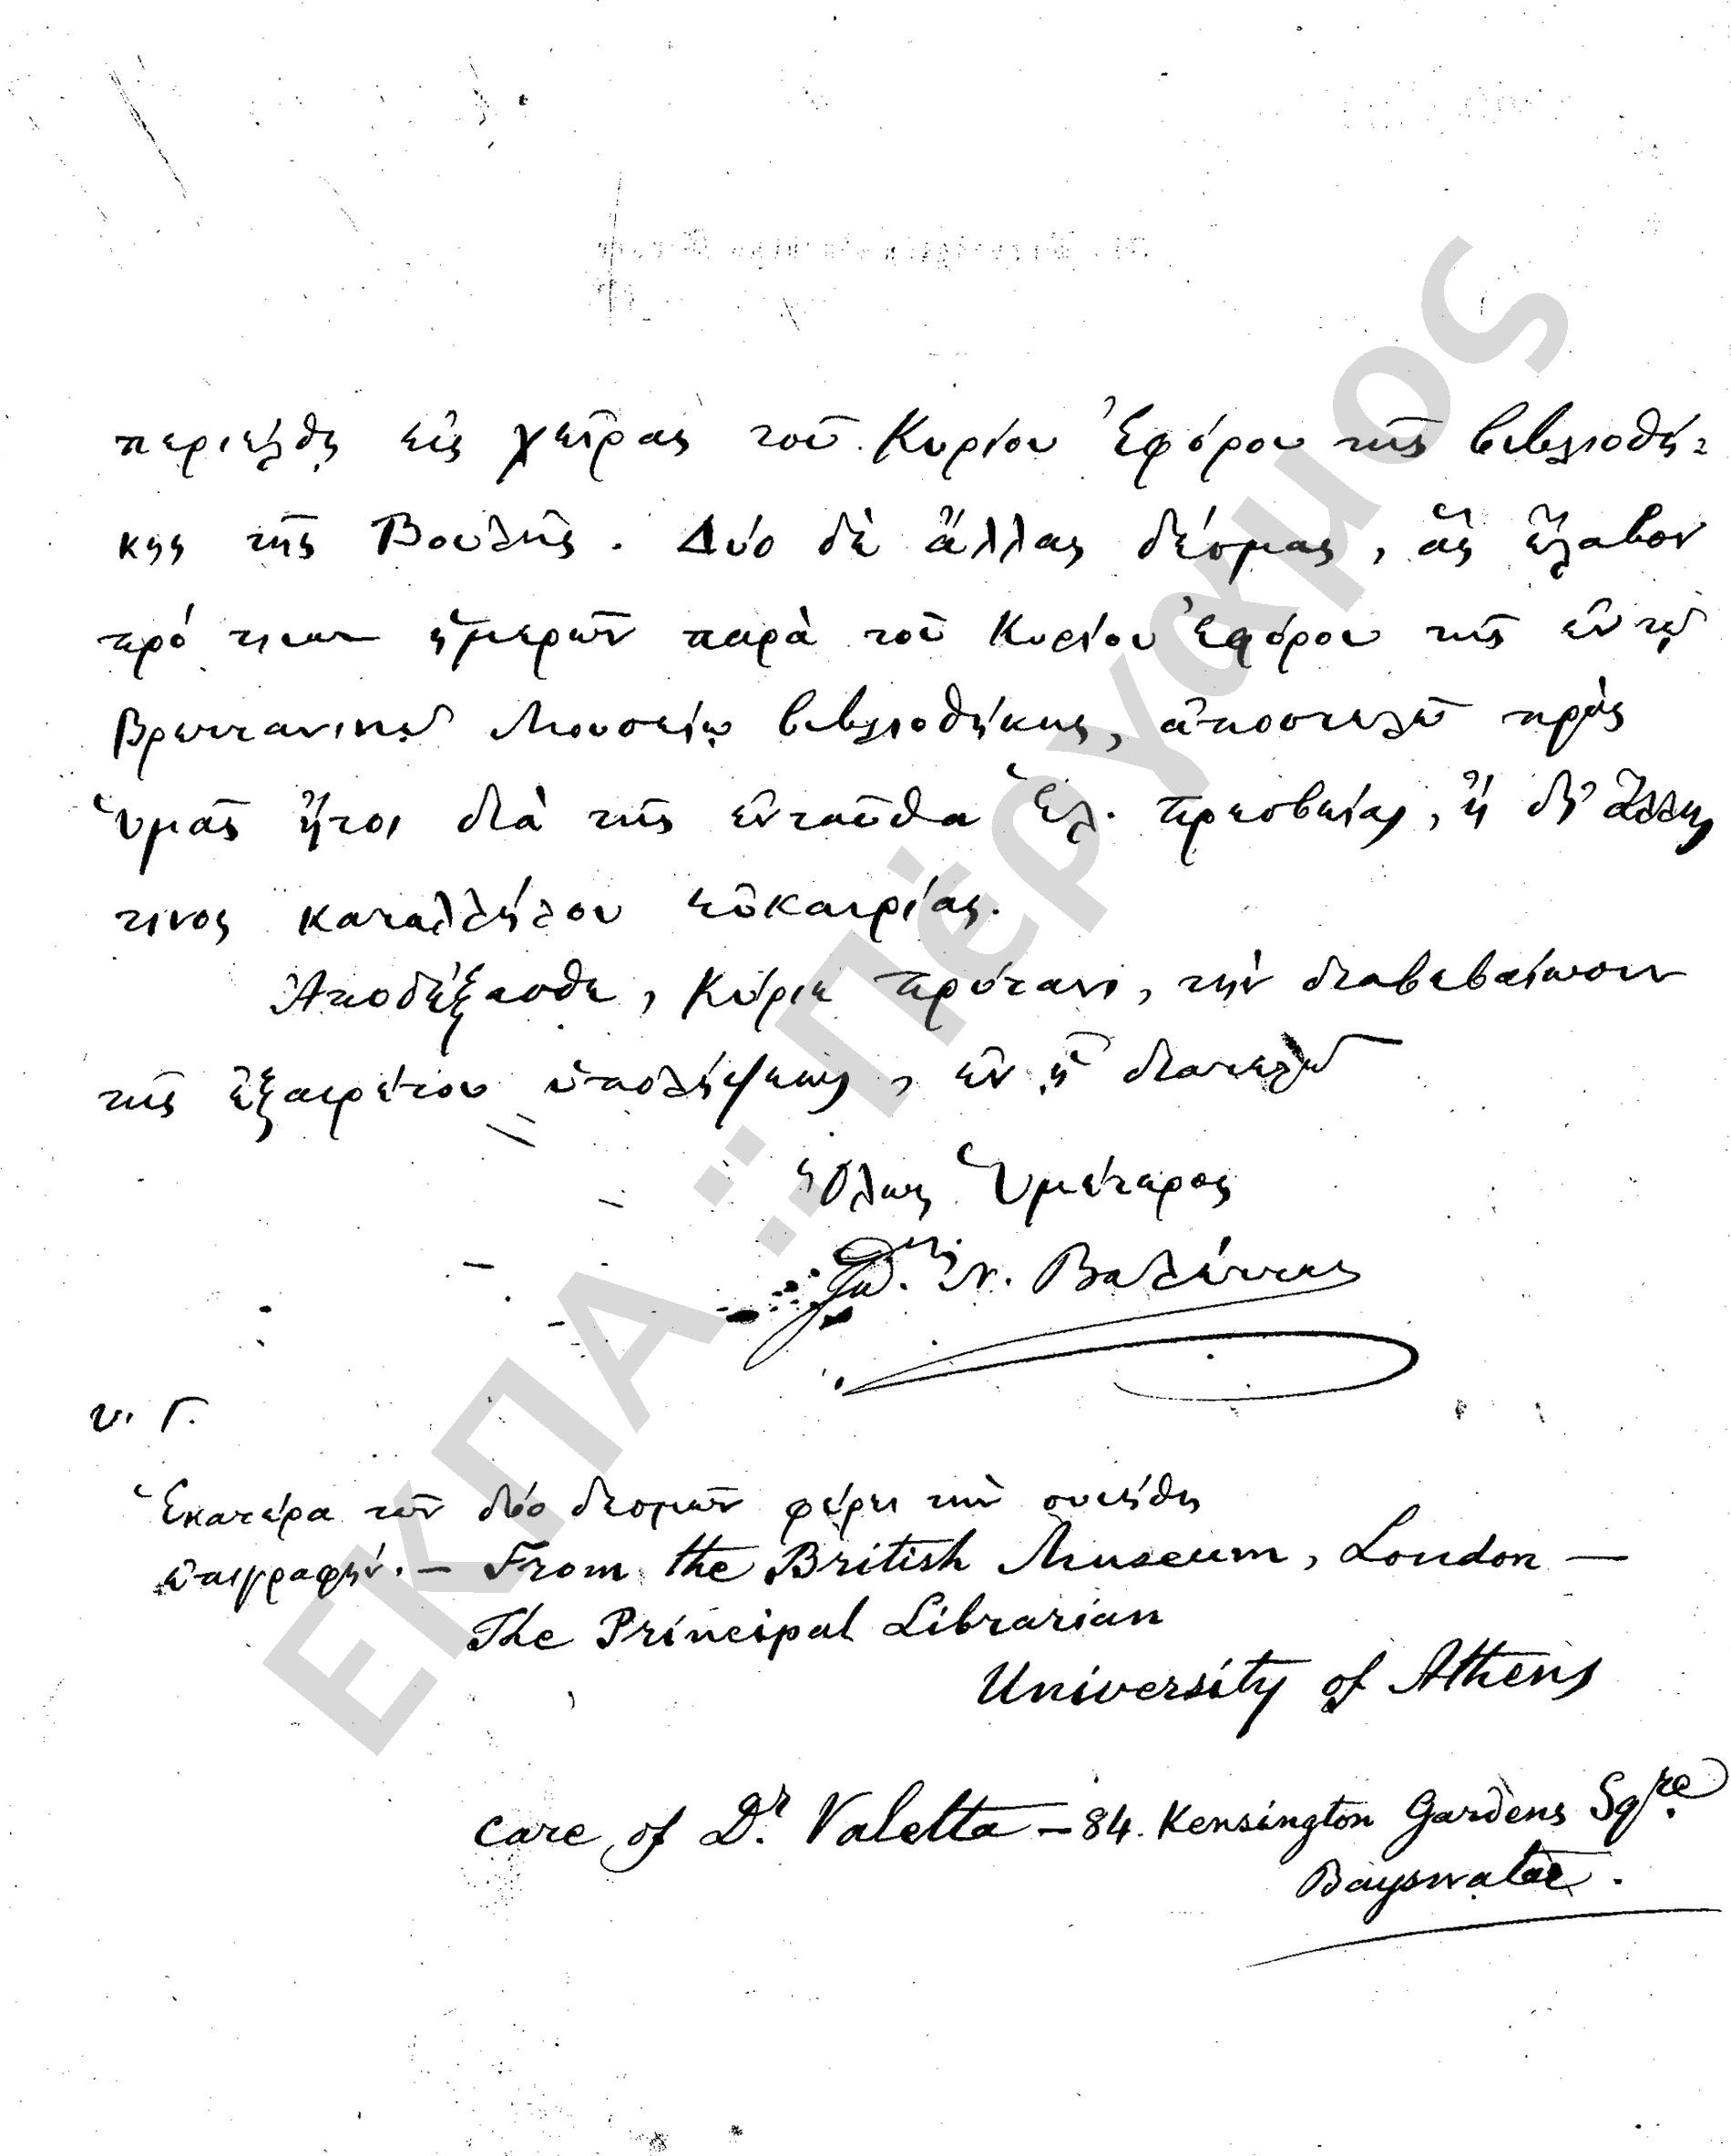 περιῆλθε εἰς χεῖρας τοῦ Κυρίου Ἐφόρου τῆς βιβλιοθή-
κης τῆς Βουλῆς. Δύο δὲ ἄλλας δέσμας, ἃς ἔλαβον
πρό τινων ἡμερῶν παρὰ τοῦ Κυρίου Ἐφόρου τῆς ἐν τῷ
Βρεττανικῷ Μουσείῳ βιβλιοθήκης, ἀποστελῶ πρὸς
Ὑμᾶς ἤτοι διὰ τῆς ἐνταῦθα Ἑλ. Πρεσβείας, ἢ δι' ἄλλης
τινος καταλλήλου εὐκαιρίας.
Ἀποδέξασθε, Κύριε Πρύτανι, τὴν διαβεβαίωσιν
τῆς ἐξαιρέτου ὑπολήψεως, ἐν ᾗ διατελῶ
Ὅλως Ὑμέτερος
Ἰω. Ν. Βαλέττας
Υ. Γ.
Ἑκατέρα τῶν δύο δεσμῶν φέρει τὴν συνήθη
ἐπιγραφήν. — From the British Museum, London —
The Principal Librarian
University of Athens
care of Dr. Valetta — 84. Kensington Gardens Sqre.
Bayswater.
ΕΚΠΑ :: Πέργαμος